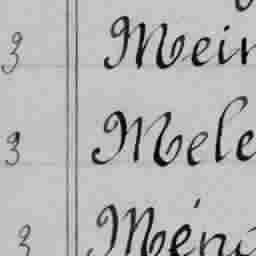 3 Mein
3 Mele
3 Méno